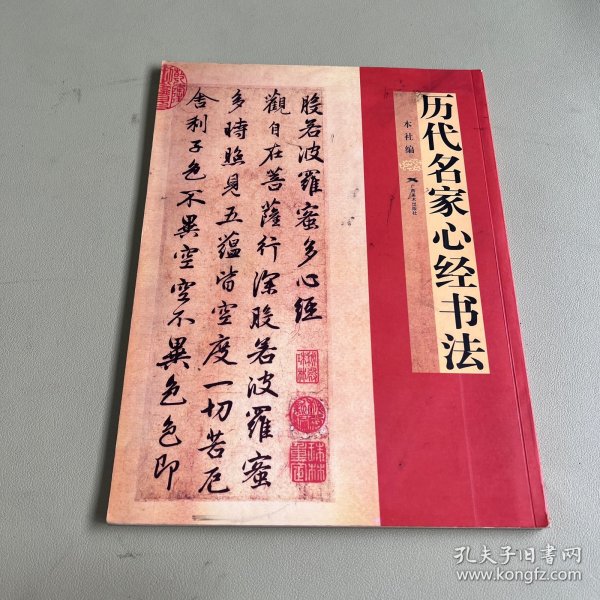 历代名家心经书法
本社编
广西美术出版社
般若波罗蜜多心經
觀自在菩薩行深般若波羅蜜
多時照見五蕴皆空度一切苦厄
舍利子色不異空空不異色色即
孔夫子旧书网
www.kongfz.com